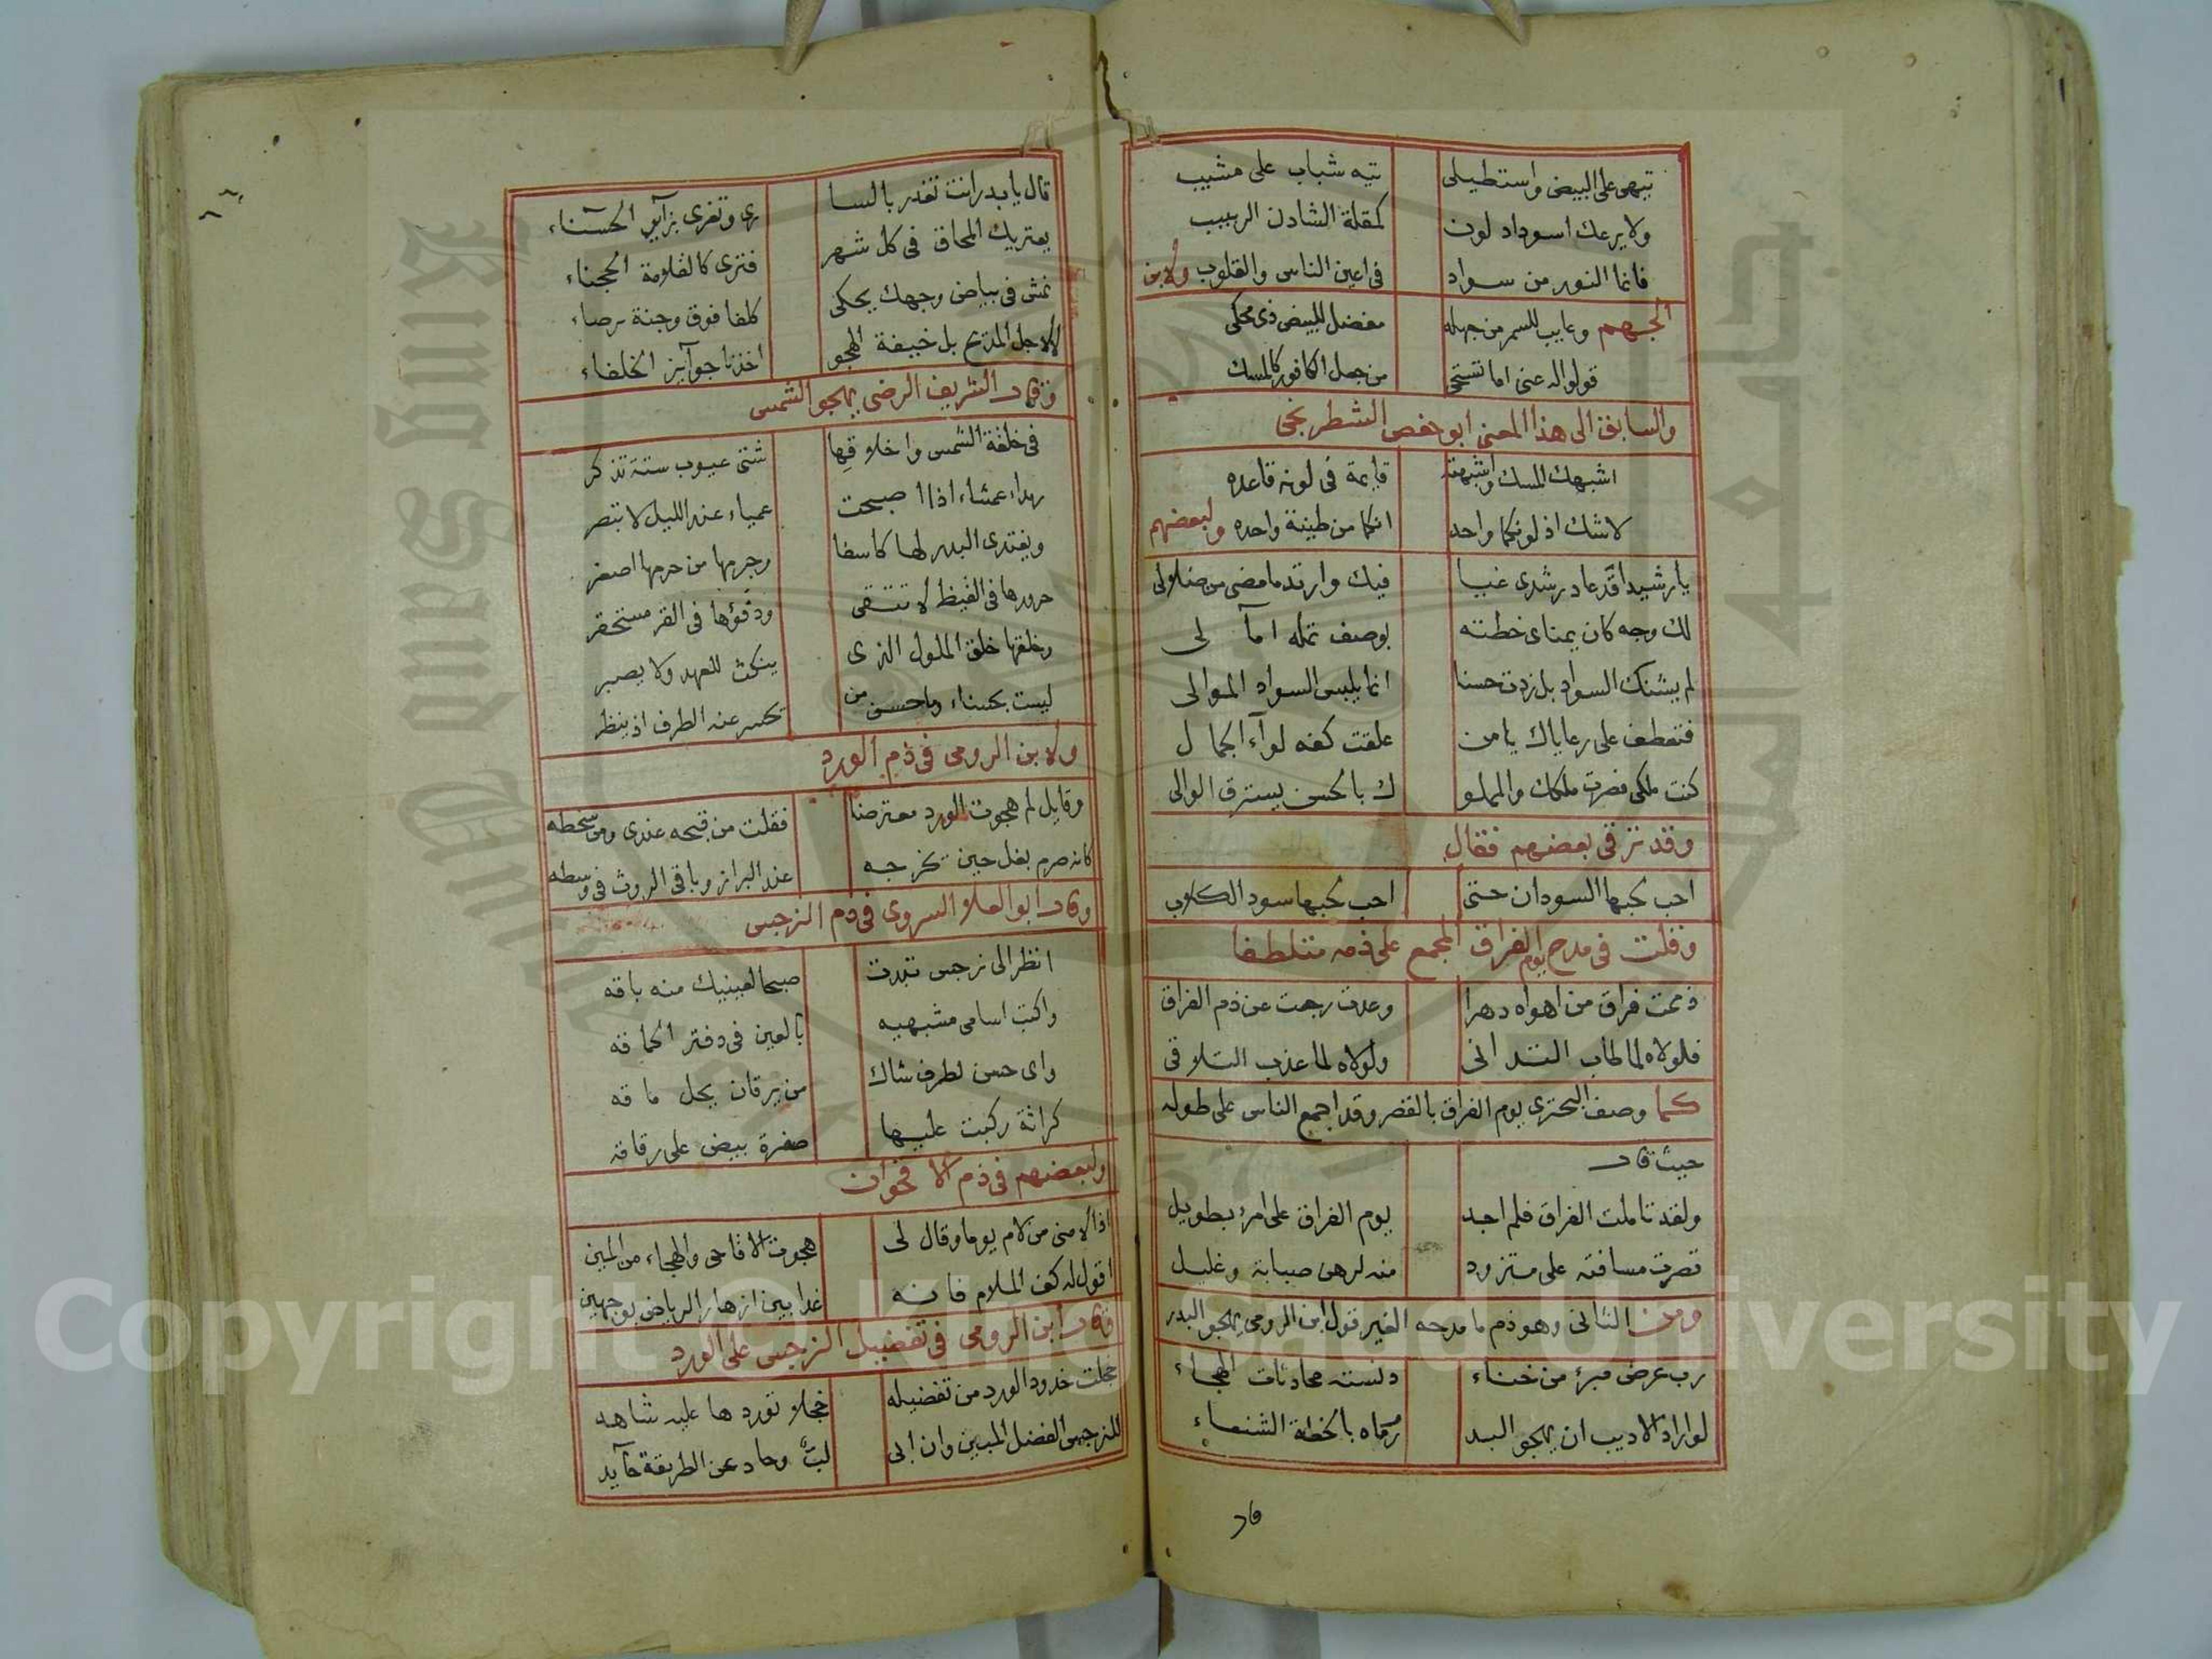 تيهى على البيض واستطيلى تيه شباب على مشيب
ولا يرعك اسوداد لون كمقلة الشادن الربيب
فانما النور من سواد فى اعين الناس والقلوب ولابن
الجهم وعايب للسمر من جهله مفضل للبيض ذى محكى
قولوا له عنى اما تستحى من جعل الكافور كالمسك
والسابق الى هذا المعنى ابو حفص الشطرنجى
اشبهك المسك واشبهته قايمة فى لونه قاعده
لا شك اذ لونكما واحد انكما من طينة واحده ولبعضهم
يا رشيدا قد عاد رشدى غيا فيك وارتد ما مضى من ضلالى
لك وجه كان يمناى خطته بوصف تمله آمالى
لم يشنك السواد بل زدت حسنا انما يلبس السواد الموالى
فتعطف على رعاياك يا من علقت كفه لوآء الجمال
كنت ملكى فصرت ملكك والمملو ك بالحسن يسترق الوالى
وقد ترقى بعضهم فقال
احب لحبها السودان حتى احب لحبها سود الكلاب
وقلت فى مدح يوم الفراق المجمع على ذمه متلطفا
ذممت فراق من اهواه دهرا وعدت رجعت عن ذم الفراق
فلولاه لما طاب التدانى ولولاه لما عذب التلاقى
كما وصف البحترى يوم الفراق بالقصر وقد اجمع الناس على طوله
حيث قال
ولقد تاملت الفراق فلم اجد يوم الفراق على امرء بطويل
قصرت مسافته على متزود منه لرهن صبابة وغليل
ومن الثانى وهو ذم ما مدحه الغير قول ابن الرومى يهجو البدر
رب عرض مبرء من خناء دنسته محادثات الهجاء
لو اراد الاديب ان يهجو البد رماه بالخطة الشنعاء
قال
قال يا بدر انت تغدر بالسا رى وتغرى بزآير الحسناء
يعتريك المحاق فى كل شهر فترى كالقلامة الحجناء
نمش فى بياض وجهك يحكى كلفا فوق وجنة برصاء
لا لاجل المديح بل خيفة الهجو اخذنا جوآيز الخلفاء
وقال الشريف الرضى يهجو الشمس
فى خلقة الشمس واخلاقها شتى عيوب ستة تذكر
رمداء عمشاء اذا اصبحت عمياء عند الليل لا تبصر
ويغتدى البدر لها كاسفا وجرمها من جرمها اصغر
حرورها فى القيظ لا تتقى ودفؤها فى القر مستحقر
وخلقها خلق الملول الذى ينكث للعهد ولا يصبر
ليست بحسناء وما حسن من تحسر عنه الطرف اذ ينظر
ولابن الرومى فى ذم الورد
وقايل لم هجوت الورد معترضا فقلت من قبحه عندى ومن سخطه
كانه صرم بغل حين تخرجه عند البراز وباقى الروث فى وسطه
وقال ابو العلا السروى فى ذم النرجس
انظر الى نرجس تبدت صبحا لعينيك منه باقه
واكتب اسامى مشبهيه بالعين فى دفتر الحماقه
واى حسن لطرف شاك من يرقان يحل ماقه
كراثة ركبت عليها صفرة بيض على رقاقه
ولبعضهم فى ذم الاقحوان
اذا لامنى من لام يوما وقال لى هجوت الاقاحى والهجاء من المين
اقول له كف الملام فانه غدا بين ازهار الرياض بوجهين
وقال ابن الرومى فى تفضيل النرجس على الورد
خجلت خدود الورد من تفضيله خجلا توردها عليه شاهد
للنرجس الفضل المبين وان ابى وحاد عن الطريقة حآيد
Copyright © King Saud University